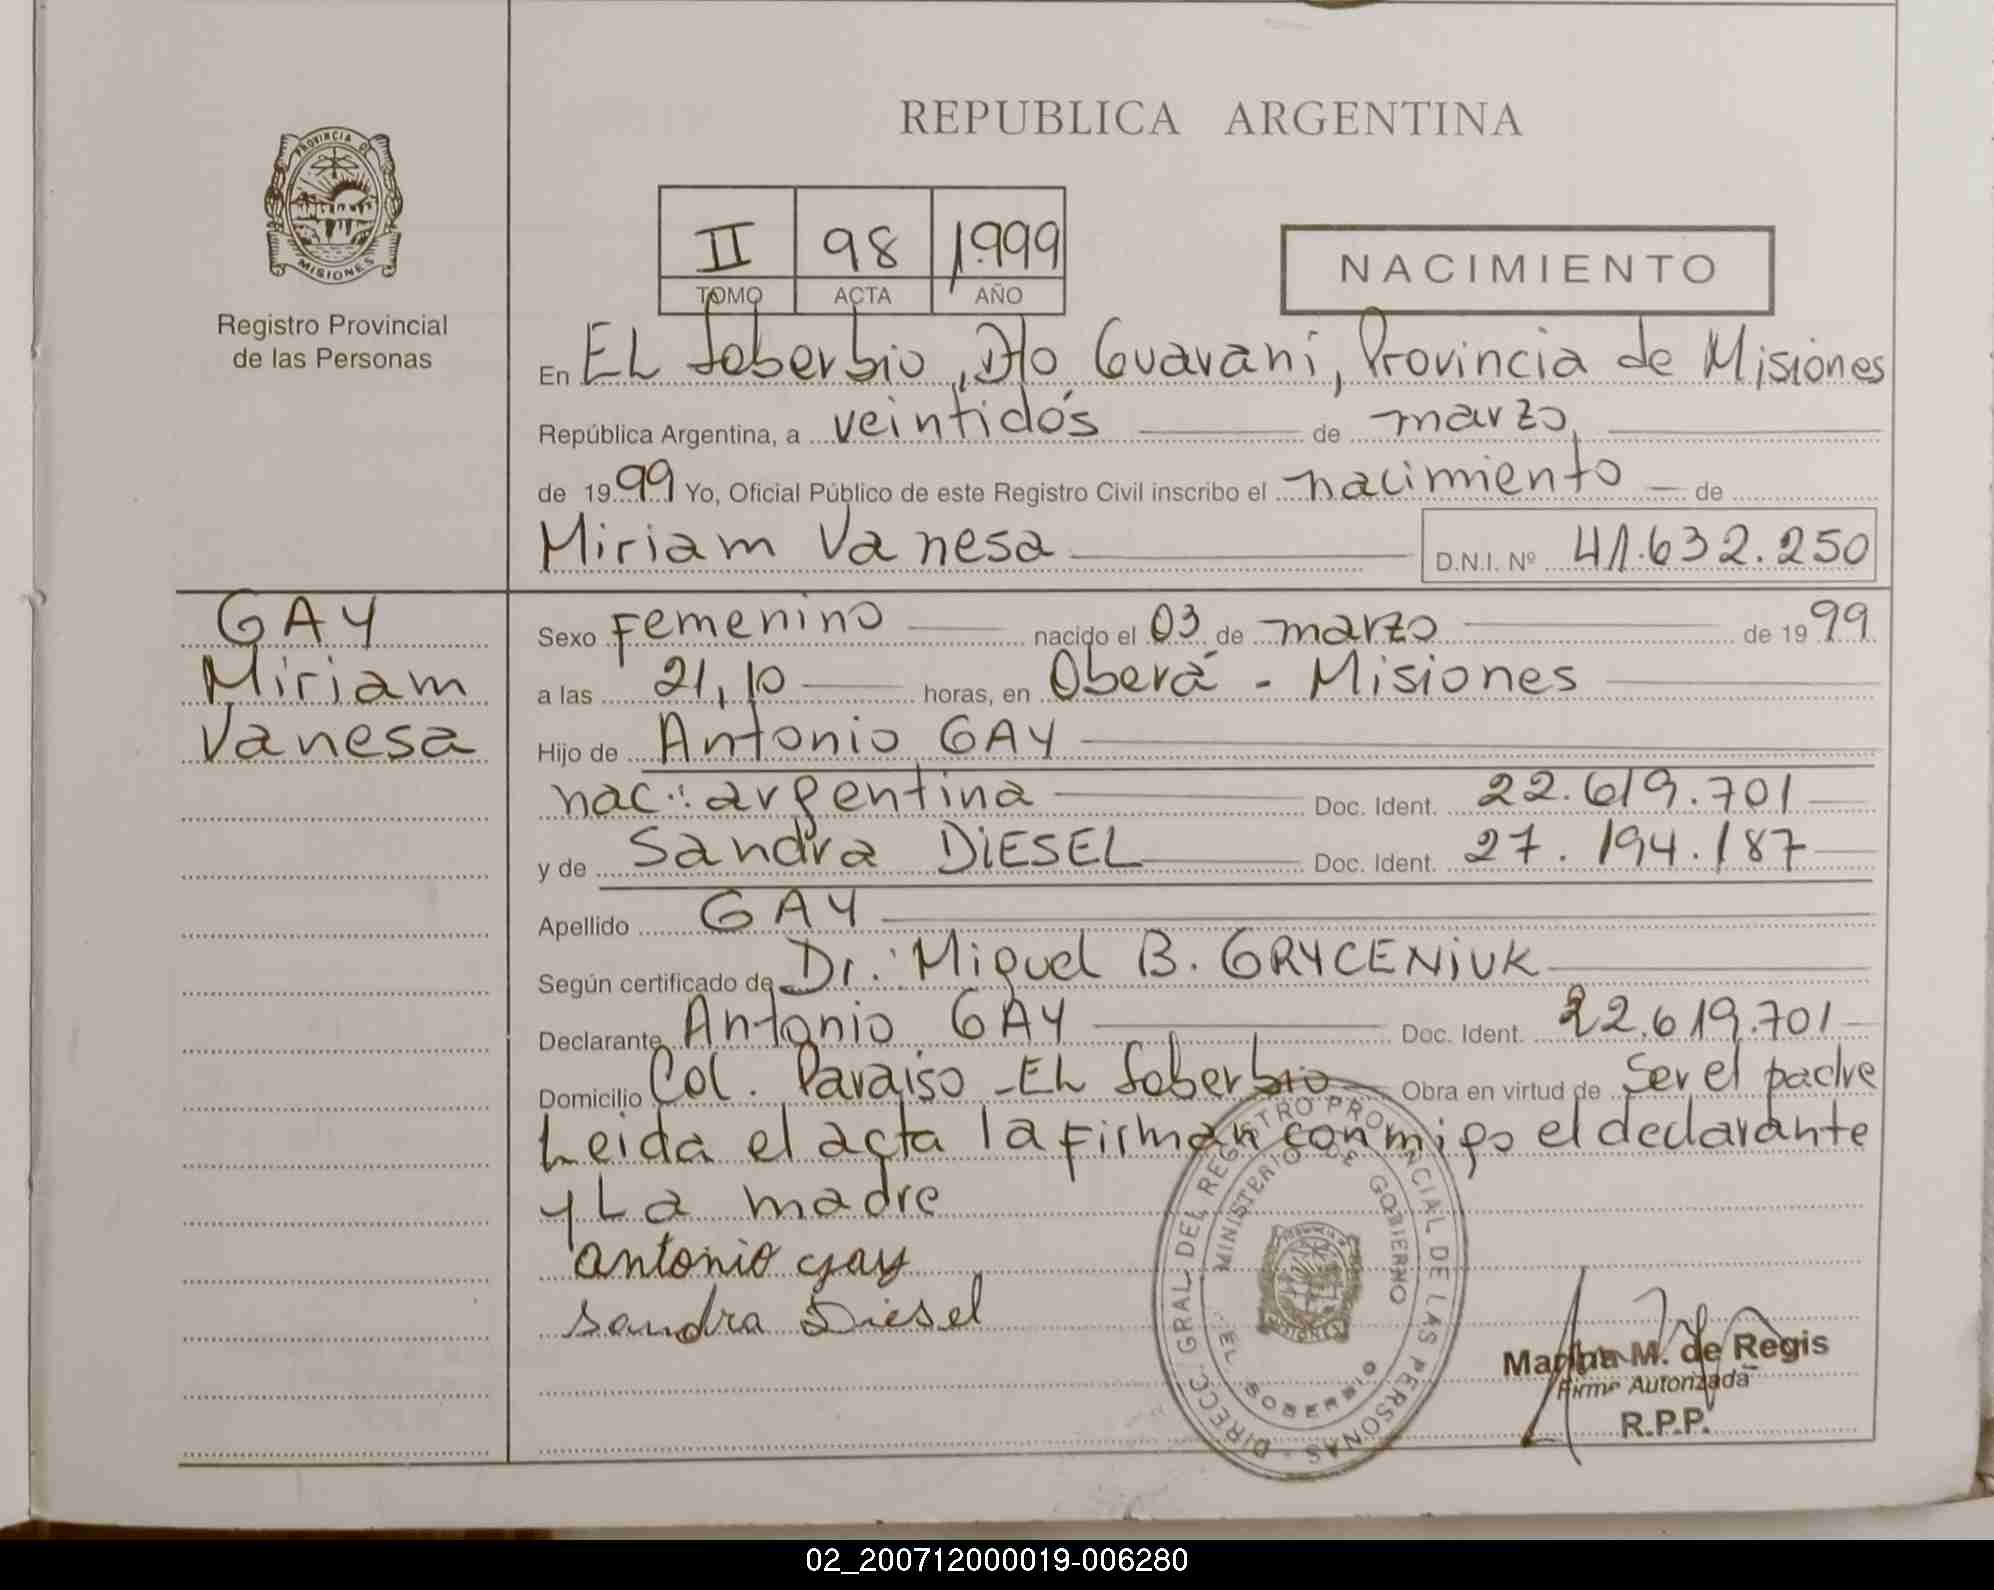 REPUBLICA ARGENTINA
PROVINCIA DE
MISIONES
Registro Provincial
de las Personas
II 98 1.999
TOMO ACTA AÑO
NACIMIENTO
En EL Soberbio, Dto Guarani, Provincia de Misiones
República Argentina, a veintidós de marzo
de 1999 Yo, Oficial Público de este Registro Civil inscribo el nacimiento de
Miriam Vanesa D.N.I. Nº 41.632.250
GAY
Miriam
Vanesa
Sexo Femenino nacido el 03 de marzo de 1999
a las 21,10 horas, en Oberá - Misiones
Hijo de Antonio GAY
nac.: argentina Doc. Ident. 22.619.701
y de Sandra DiESEL Doc. Ident. 27.194.187
Apellido GAY
Según certificado de Dr. Miguel B. GRYCENiUK
Declarante Antonio GAY Doc. Ident. 22.619.701
Domicilio Col. Paraiso - EL Soberbio Obra en virtud de ser el padre
Leida el acta la firman conmigo el declarante
y La madre
antonio gay
Sandra Diesel
DIRECC. GRAL. DEL REGISTRO PROVINCIAL DE LAS PERSONAS
MINISTERIO DE GOBIERNO
EL SOBERBIO
MISIONES
M. de Regis
Firma Autorizada
R.P.P.
02_200712000019-006280